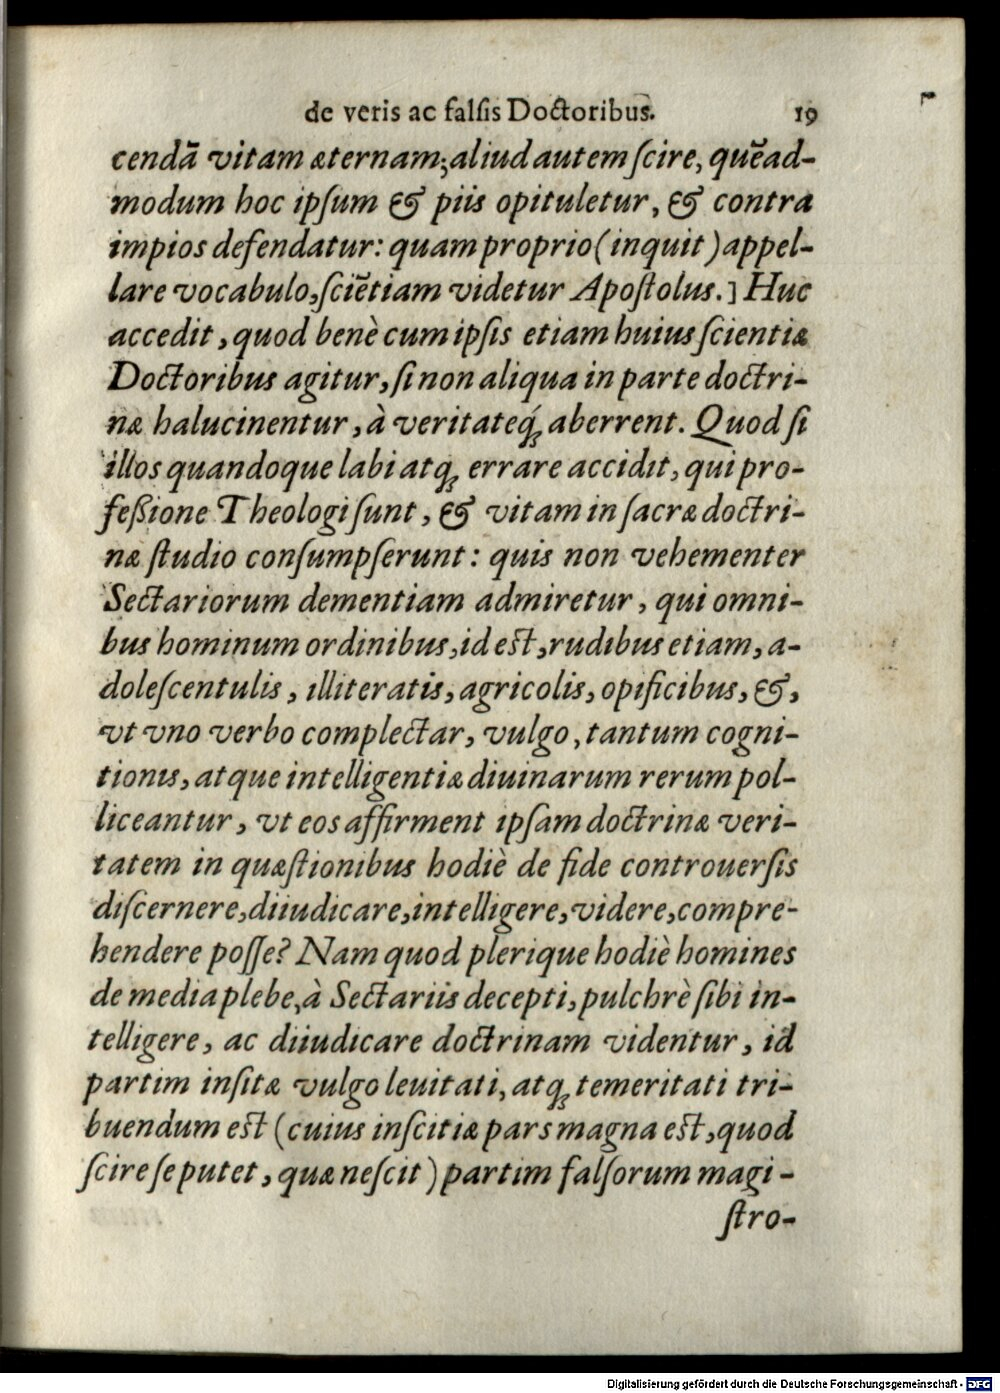 de veris ac falsis Doctoribus. 19
cendā vitam æternam; aliud autem ſcire, quēad-
modum hoc ipſum & piis opituletur, & contra
impios defendatur: quam proprio (inquit) appel-
lare vocabulo, ſciētiam videtur Apoſtolus.] Huc
accedit, quod benè cum ipſis etiam huius ſcientiæ
Doctoribus agitur, ſi non aliqua in parte doctri-
næ halucinentur, à veritateq́; aberrent. Quod ſi
illos quandoque labi atq; errare accidit, qui pro-
feßione Theologi ſunt, & vitam in ſacræ doctri-
næ ſtudio conſumpſerunt: quis non vehementer
Sectariorum dementiam admiretur, qui omni-
bus hominum ordinibus, id est, rudibus etiam, a-
doleſcentulis, illiteratis, agricolis, opificibus, &,
vt vno verbo complectar, vulgo, tantum cogni-
tionis, atque intelligentiæ diuinarum rerum pol-
liceantur, vt eos affirment ipſam doctrinæ veri-
tatem in quæſtionibus hodiè de fide controuerſis
diſcernere, diiudicare, intelligere, videre, compre-
hendere poſſe? Nam quod plerique hodiè homines
de media plebe, à Sectariis decepti, pulchrè ſibi in-
telligere, ac diiudicare doctrinam videntur, id
partim inſitæ vulgo leuitati, atq; temeritati tri-
buendum est (cuius inſcitiæ pars magna est, quod
ſcire ſe putet, quæ neſcit) partim falſorum magi-
ſtro-
Digitalisierung gefördert durch die Deutsche Forschungsgemeinschaft - DFG